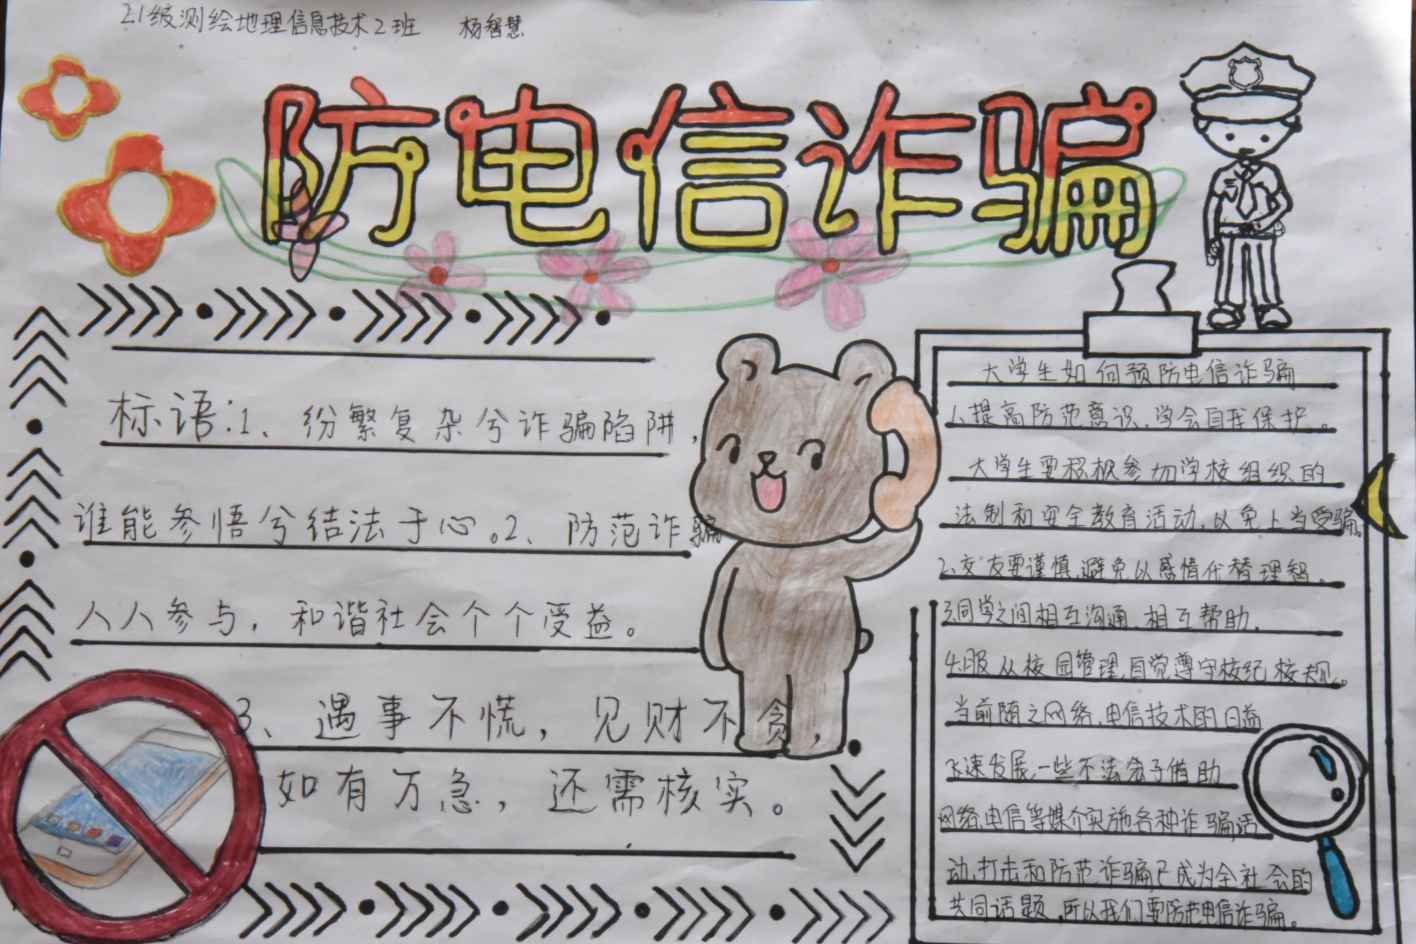 21级测绘地理信息技术2班 杨智慧
防电信诈骗
标语:1、纷繁复杂兮诈骗陷阱,
谁能参悟兮结法于心。2、防范诈骗
人人参与,和谐社会个个受益。
3、遇事不慌,见财不贪,
如有万急,还需核实。
大学生如何预防电信诈骗
1.提高防范意识,学会自我保护。
大学生要积极参加学校组织的
法制和安全教育活动,以免上当受骗。
2.交友要谨慎,避免以感情代替理智。
3.同学之间相互沟通,相互帮助.
4.服从校园管理,自觉遵守校纪校规。
当前随之网络、电信技术的日益
飞速发展,一些不法分子借助
网络、电信等媒介实施各种诈骗活
动,打击和防范诈骗已成为全社会的
共同话题,所以我们要防电信诈骗。